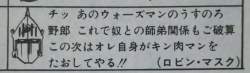 チッ あのウォーズマンのうすのろ
野郎 これで奴との師弟関係もご破算
この次はオレ自身がキン肉マンを
たおしてやる!! (ロビン・マスク)